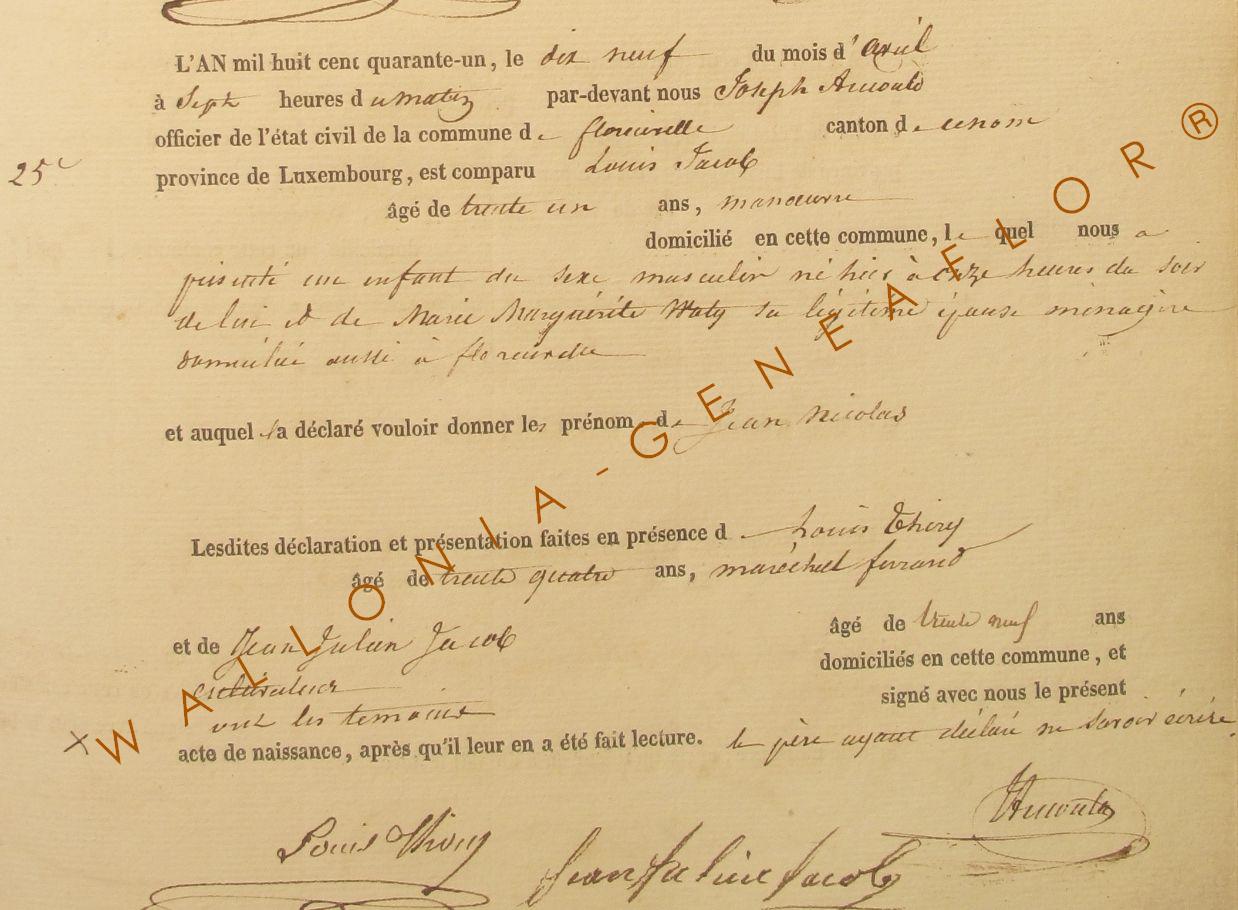 L'AN mil huit cent quarante-un, le dix neuf du mois d'avril
à Sept heures du matin par-devant nous Joseph Arnould
officier de l'état civil de la commune de florenville canton de
25e
province de Luxembourg, est comparu Louis Jacob
âgé de trente un ans, manoeuvre
domicilié en cette commune, lequel nous a
présenté un enfant du sexe masculin né hier à onze heures du soir
de lui et de Marie Marguérite Waty sa légitime épouse ménagère
domiciliée aussi à
et auquel il a déclaré vouloir donner les prénoms de Jean Nicolas
Lesdites déclaration et présentation faites en présence de Louis Thiry
âgé de trente quatre ans, maréchal ferrand
et de Jean Julien Jacob âgé de trente neuf ans
cultivateur domiciliés en cette commune, et
ont les temoins signé avec nous le présent
acte de naissance, après qu'il leur en a été fait lecture. le père ayant déclaré ne savoir écrire.
Arnould
Louis Thiry
Jean Julien Jacob
WALLONIA-GENEAFLOR®